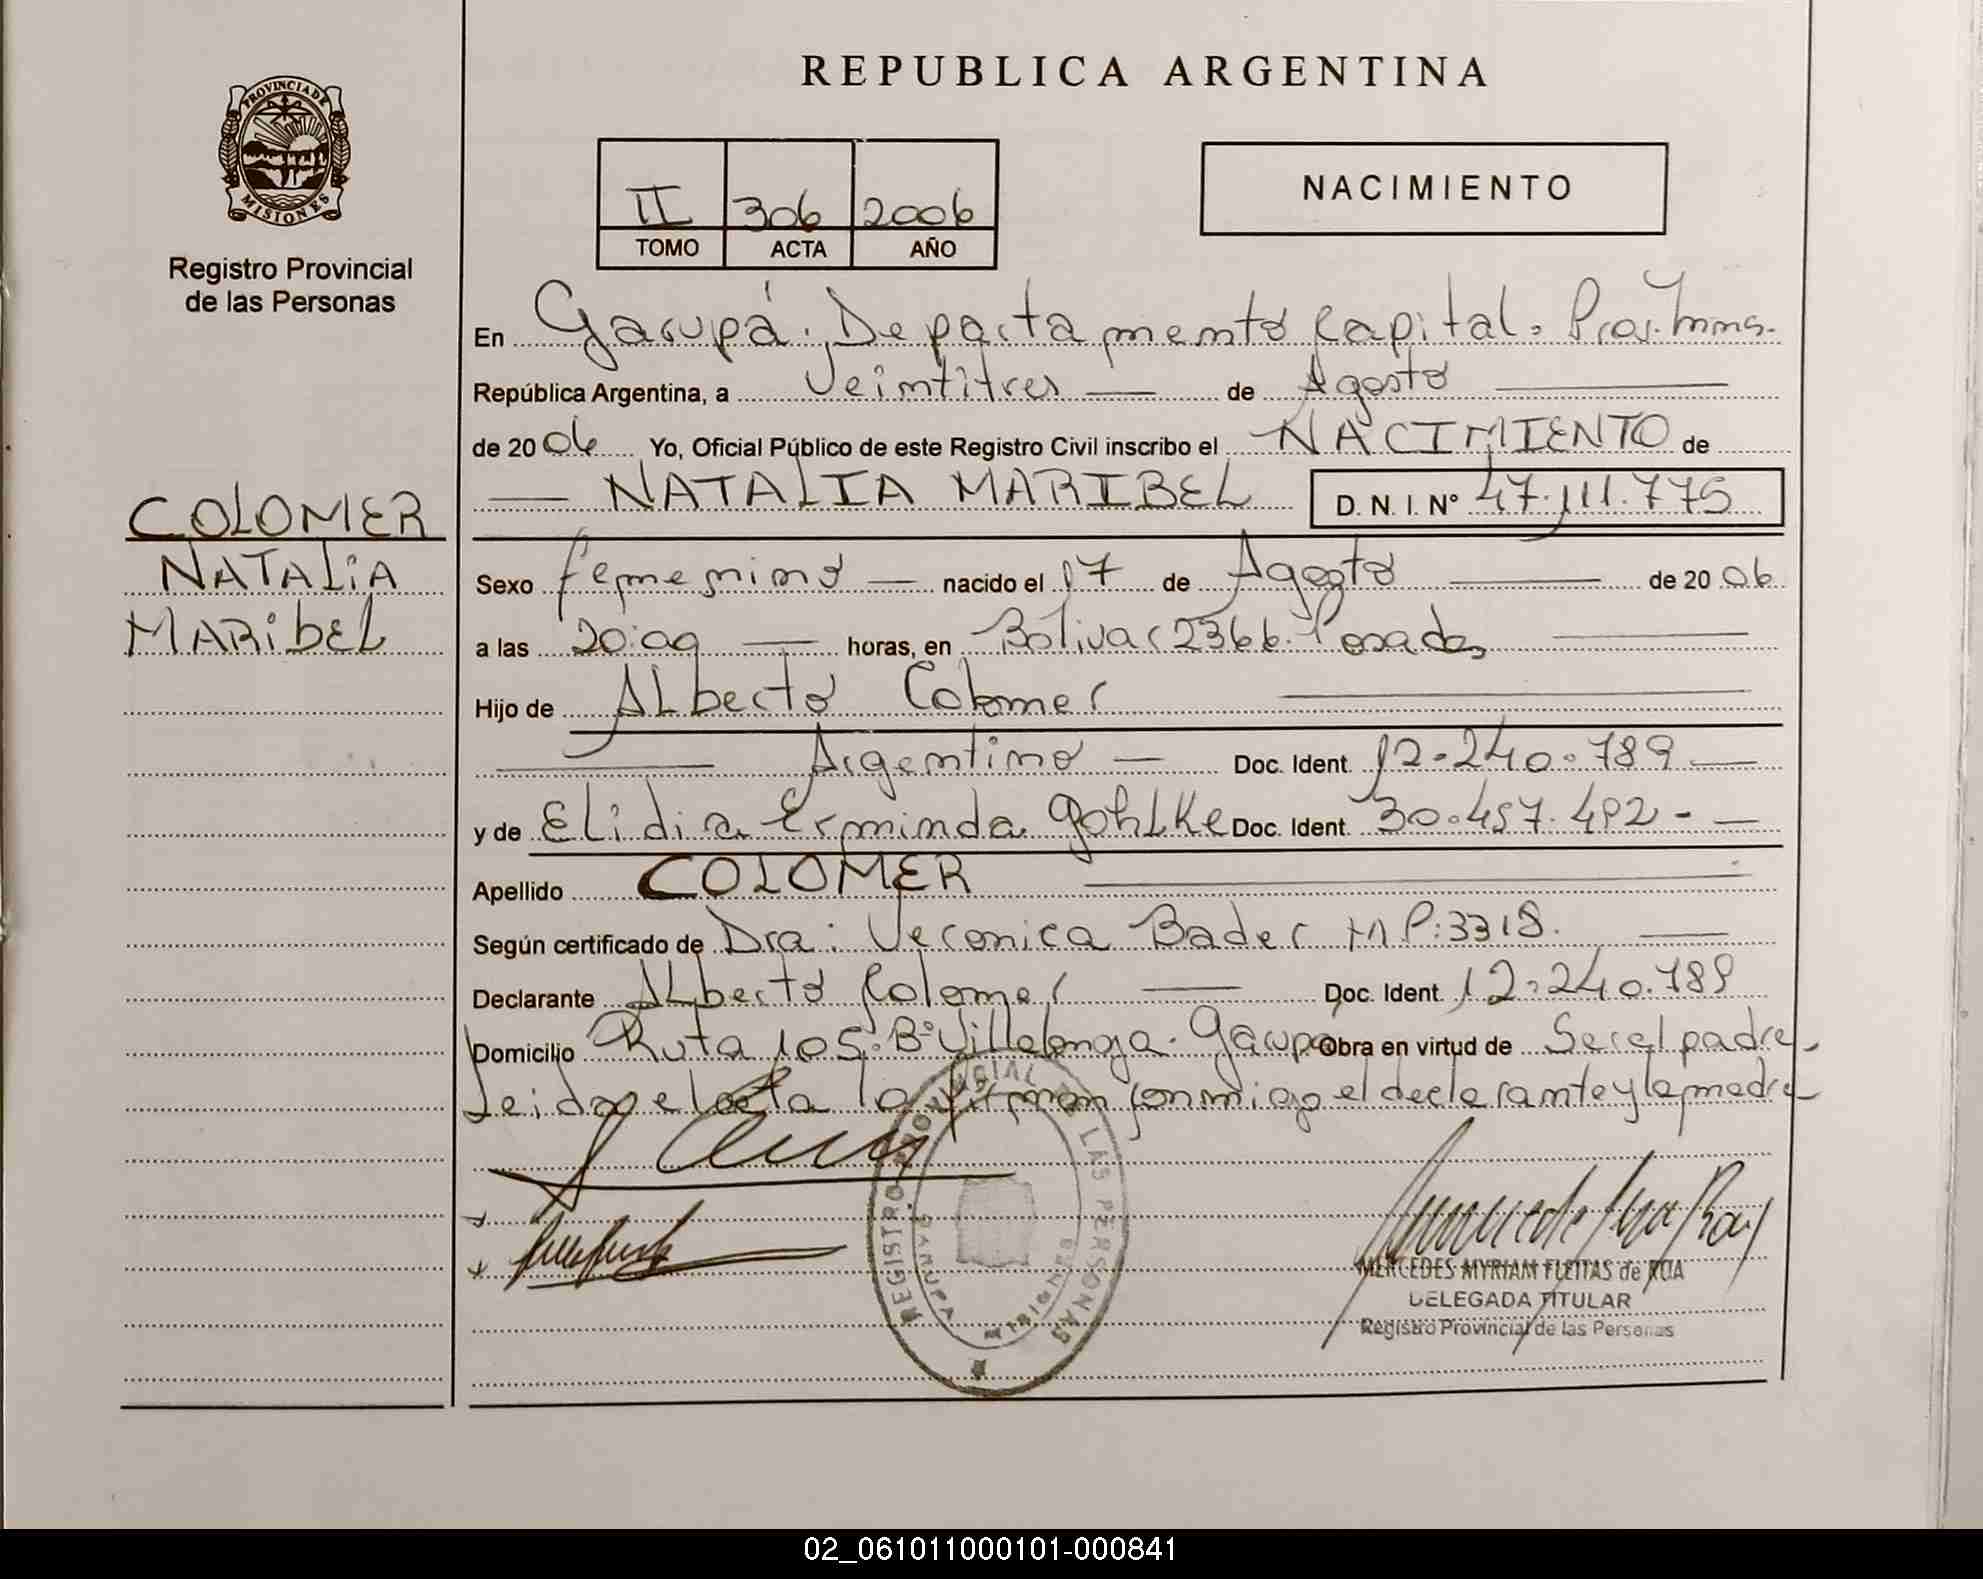 REPUBLICA ARGENTINA
PROVINCIA DE
MISIONES
Registro Provincial
de las Personas
II 306 2006
TOMO ACTA AÑO
NACIMIENTO
En Garupá. Departamento Capital. Prov. Mnes.
República Argentina, a Veintitres de Agosto
de 2006 Yo, Oficial Público de este Registro Civil inscribo el NACIMIENTO de
NATALIA MARIBEL D. N. I. Nº 47.111.775
COLOMER
NATALIA
MARIBEL
Sexo femenino nacido el 17 de Agosto de 2006
a las 20:09 horas, en Bolivar 2366. Posadas
Hijo de Alberto Colomer
Argentino Doc. Ident. 12.240.789
y de Elidia Erminda Gohlke Doc. Ident. 30.457.492 -
Apellido COLOMER
Según certificado de Dra: Veronica Bader M P: 3318.
Declarante Alberto Colomer Doc. Ident. 12.240.789
Domicilio Ruta 105. Bº Villalonga. Garupa Obra en virtud de Ser el padre-
Leida el acta la firman conmigo el declarante y la madre-
REGISTRO PROVINCIAL DE LAS PERSONAS
GARUPA
MISIONES
MERCEDES MYRIAM FLEITAS de ROA
DELEGADA TITULAR
Registro Provincial de las Personas
02_061011000101-000841